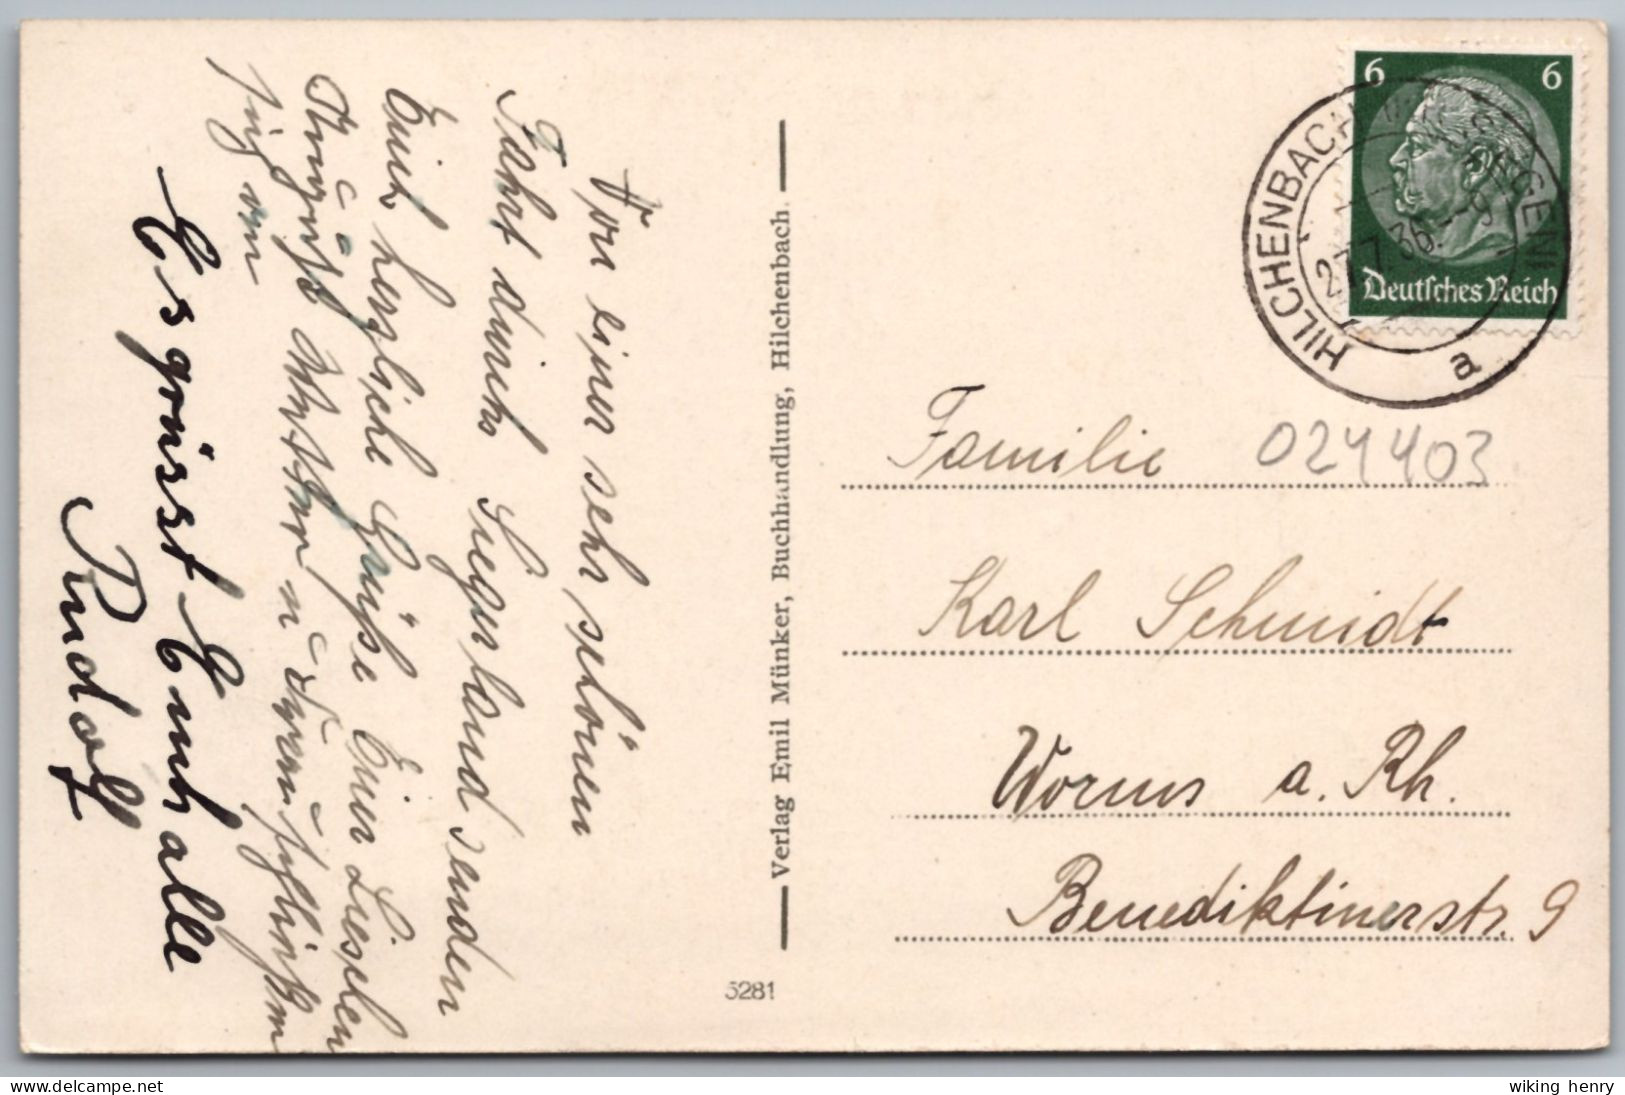 Von einer sehr schönen
Fahrt durchs Siegerland senden
Euch herzliche Grüße Euer Lieschen
von
Es grüsst Euch alle
Rudolf
Verlag Emil Münker, Buchhandlung, Hilchenbach.
5281
6 6
Deutsches Reich
HILCHENBACH
7.36
a
Familie
024403
Karl Schmidt
Worms a. Rh.
Benediktinerstr. 9
delcampe.net
wiking henry